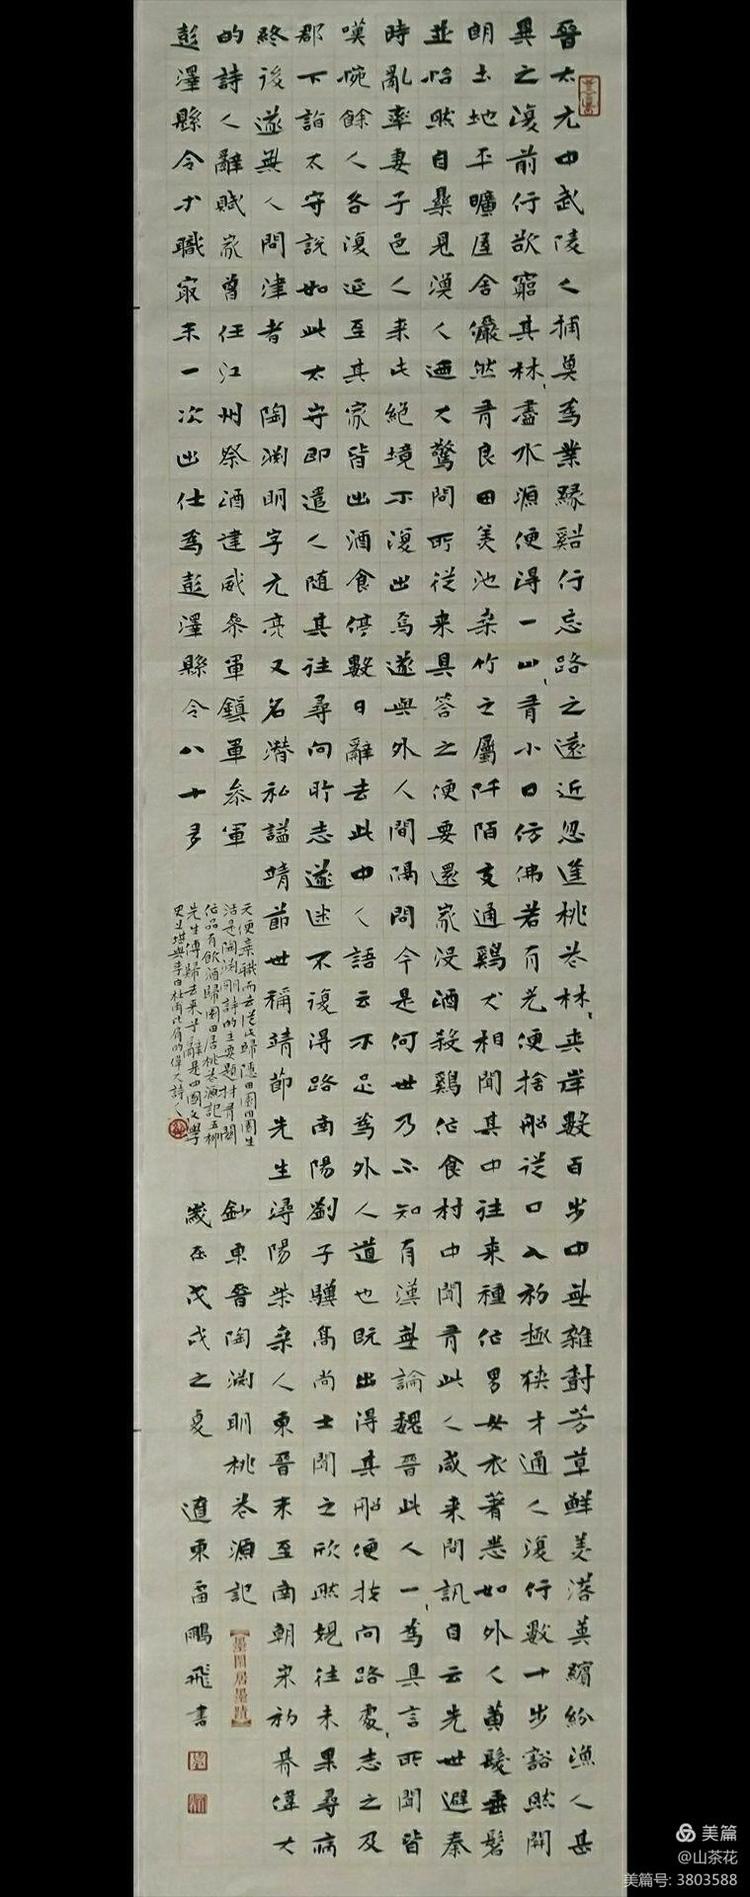 晉太元中武陵人捕魚為業緣谿行忘路之遠近忽逢桃花林夾岸數百步中無雜樹芳草鮮美落英繽紛漁人甚
異之復前行欲窮其林、盡水源便得一山、有小口仿佛若有光便捨船從口入初極狹才通人復行數十步豁然開
朗土地平曠屋舍儼然有良田美池桑竹之屬阡陌交通鷄犬相聞其中往來種作男女衣著悉如外人黃髮垂髫
並怡然自樂見漁人迺大驚問所從來具答之便要還家設酒殺鷄作食村中聞有此人咸來問訊自云先世避秦
時亂率妻子邑人來此絕境不復出焉遂與外人間隔問今是何世乃不知有漢無論魏晉此人一、為具言所聞皆
嘆惋餘人各復延至其家皆出酒食停數日辭去此中人語云不足為外人道也既出得其船便扶向路處、志之及
郡下詣太守說如此太守即遣人隨其往尋向所志遂迷不復得路南陽劉子驥高尚士聞之欣然規往未果尋病
終後遂無人問津者 陶淵明字元亮又名潛私謚靖節世稱靖節先生潯陽柴桑人東晉末至南朝宋初期偉大
的詩人辭賦家曾任江州祭酒建威參軍鎮軍參軍
彭澤縣令才職最末一次出仕為彭澤縣令八十多
天便棄職而去從此歸隱田園田園生
活是陶淵明詩的主要題材有關
作品有飲酒歸園田居桃花源記五柳
先生傳歸去來兮辭是中國文學
史上堪與李白杜甫比肩的偉大詩人
鈔東晉陶淵明桃花源記
【墨閒居墨蹟】
歲在戊戌之夏 遼東雷鵬飛書
美篇
@山茶花
美篇号: 3803588